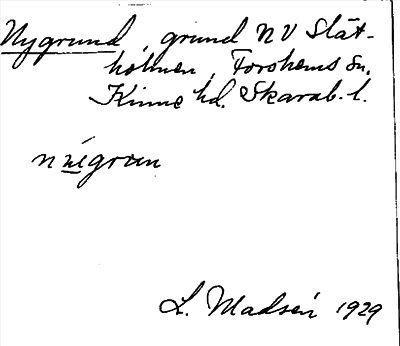 Nygrund, grund NV Slät-
holmen, Forshems sn.
Kinne hd. Skarab. l.
n nigrun
L. Madsén 1929